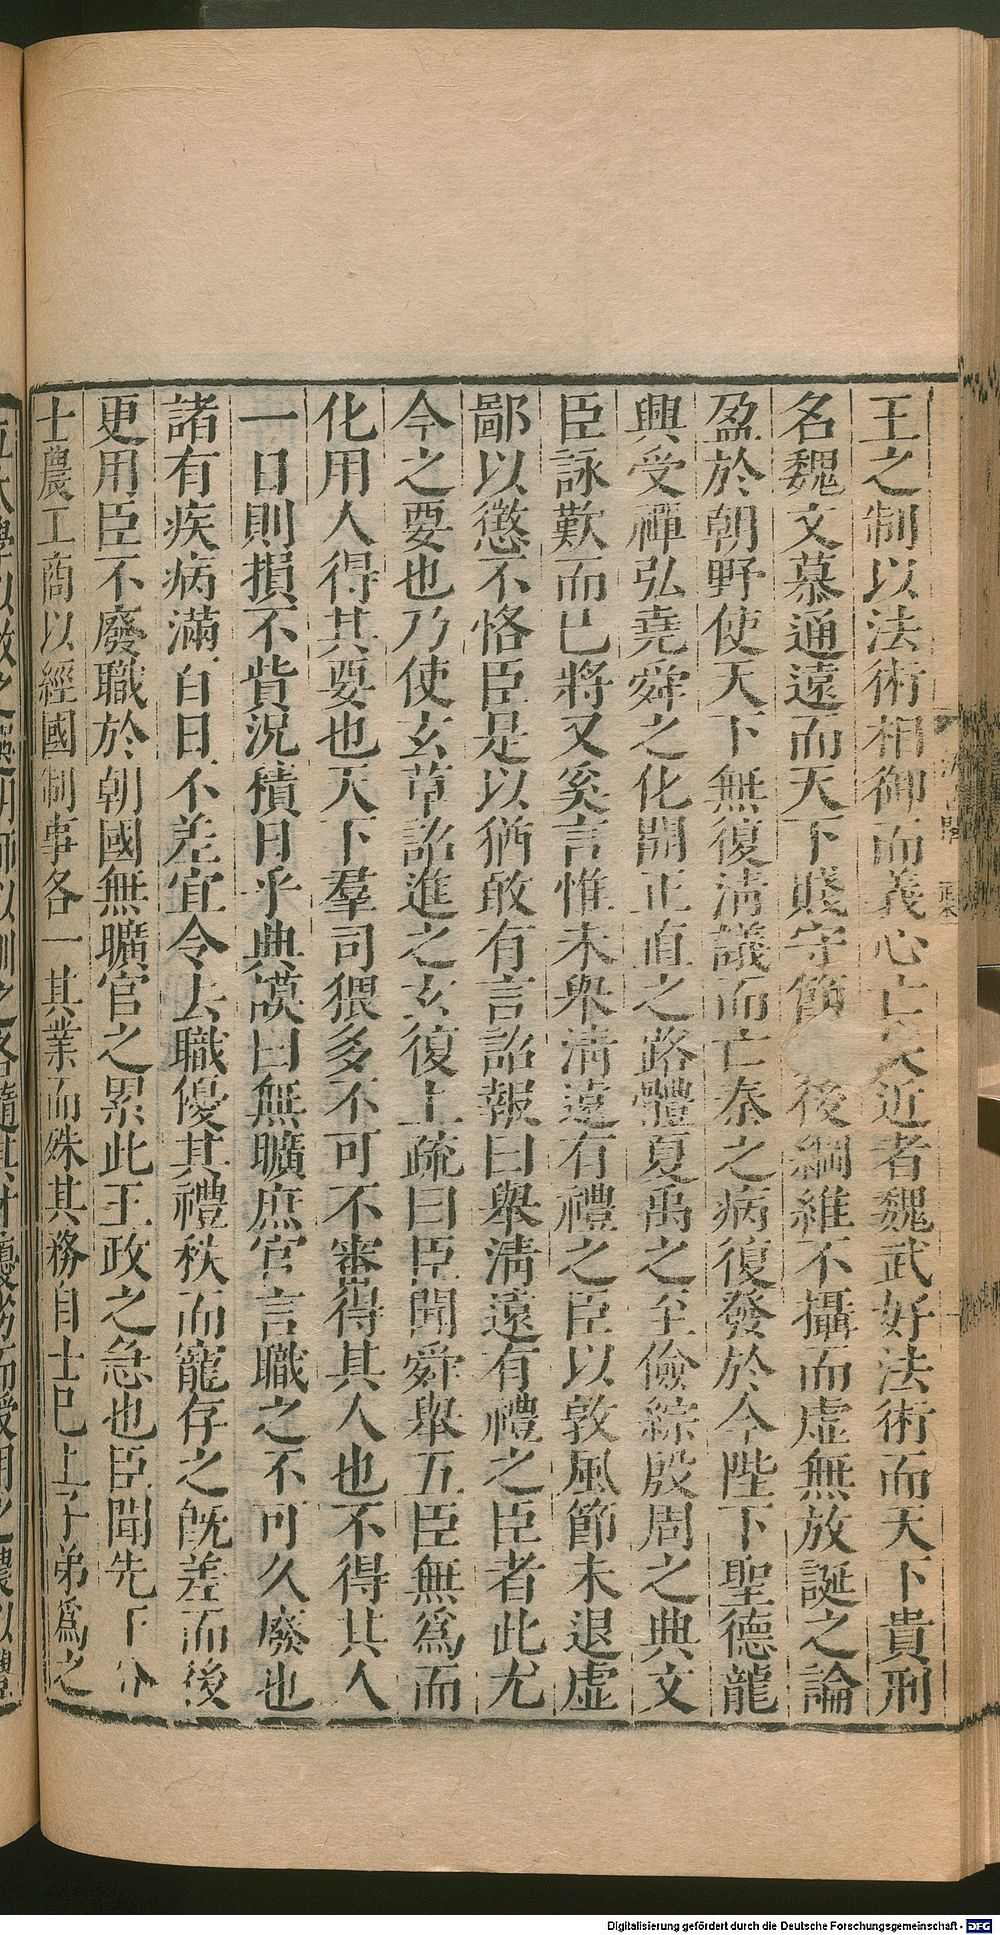 王之制以法術相御而義心亡矣近者魏武好法術而天下貴刑
名魏文慕通遠而天下賤守節後綱維不攝而虛無放誕之論
盈於朝野使天下無復淸議而亡秦之病復發於今陛下聖德龍
興受禪弘堯舜之化開正直之路體夏禹之至儉綜殷周之典文
臣詠歎而已將又奚言惟未舉淸遠有禮之臣以敦風節未退虛
鄙以懲不恪臣是以猶敢有言詔報曰舉淸遠有禮之臣者此尤
今之要也乃使玄草詔進之玄復上疏曰臣聞舜舉五臣無爲而
化用人得其要也天下羣司猥多不可不審得其人也不得其人
一日則損不貲況積日乎典謨曰無曠庶官言職之不可久廢也
諸有疾病滿百日不差宜令去職優其禮秩而寵存之旣差而後
更用臣不廢職於朝國無曠官之累此王政之急也臣聞先王分
士農工商以經國制事各一其業而殊其務自士已上子弟爲之
Digitalisierung gefördert durch die Deutsche Forschungsgemeinschaft - DFG